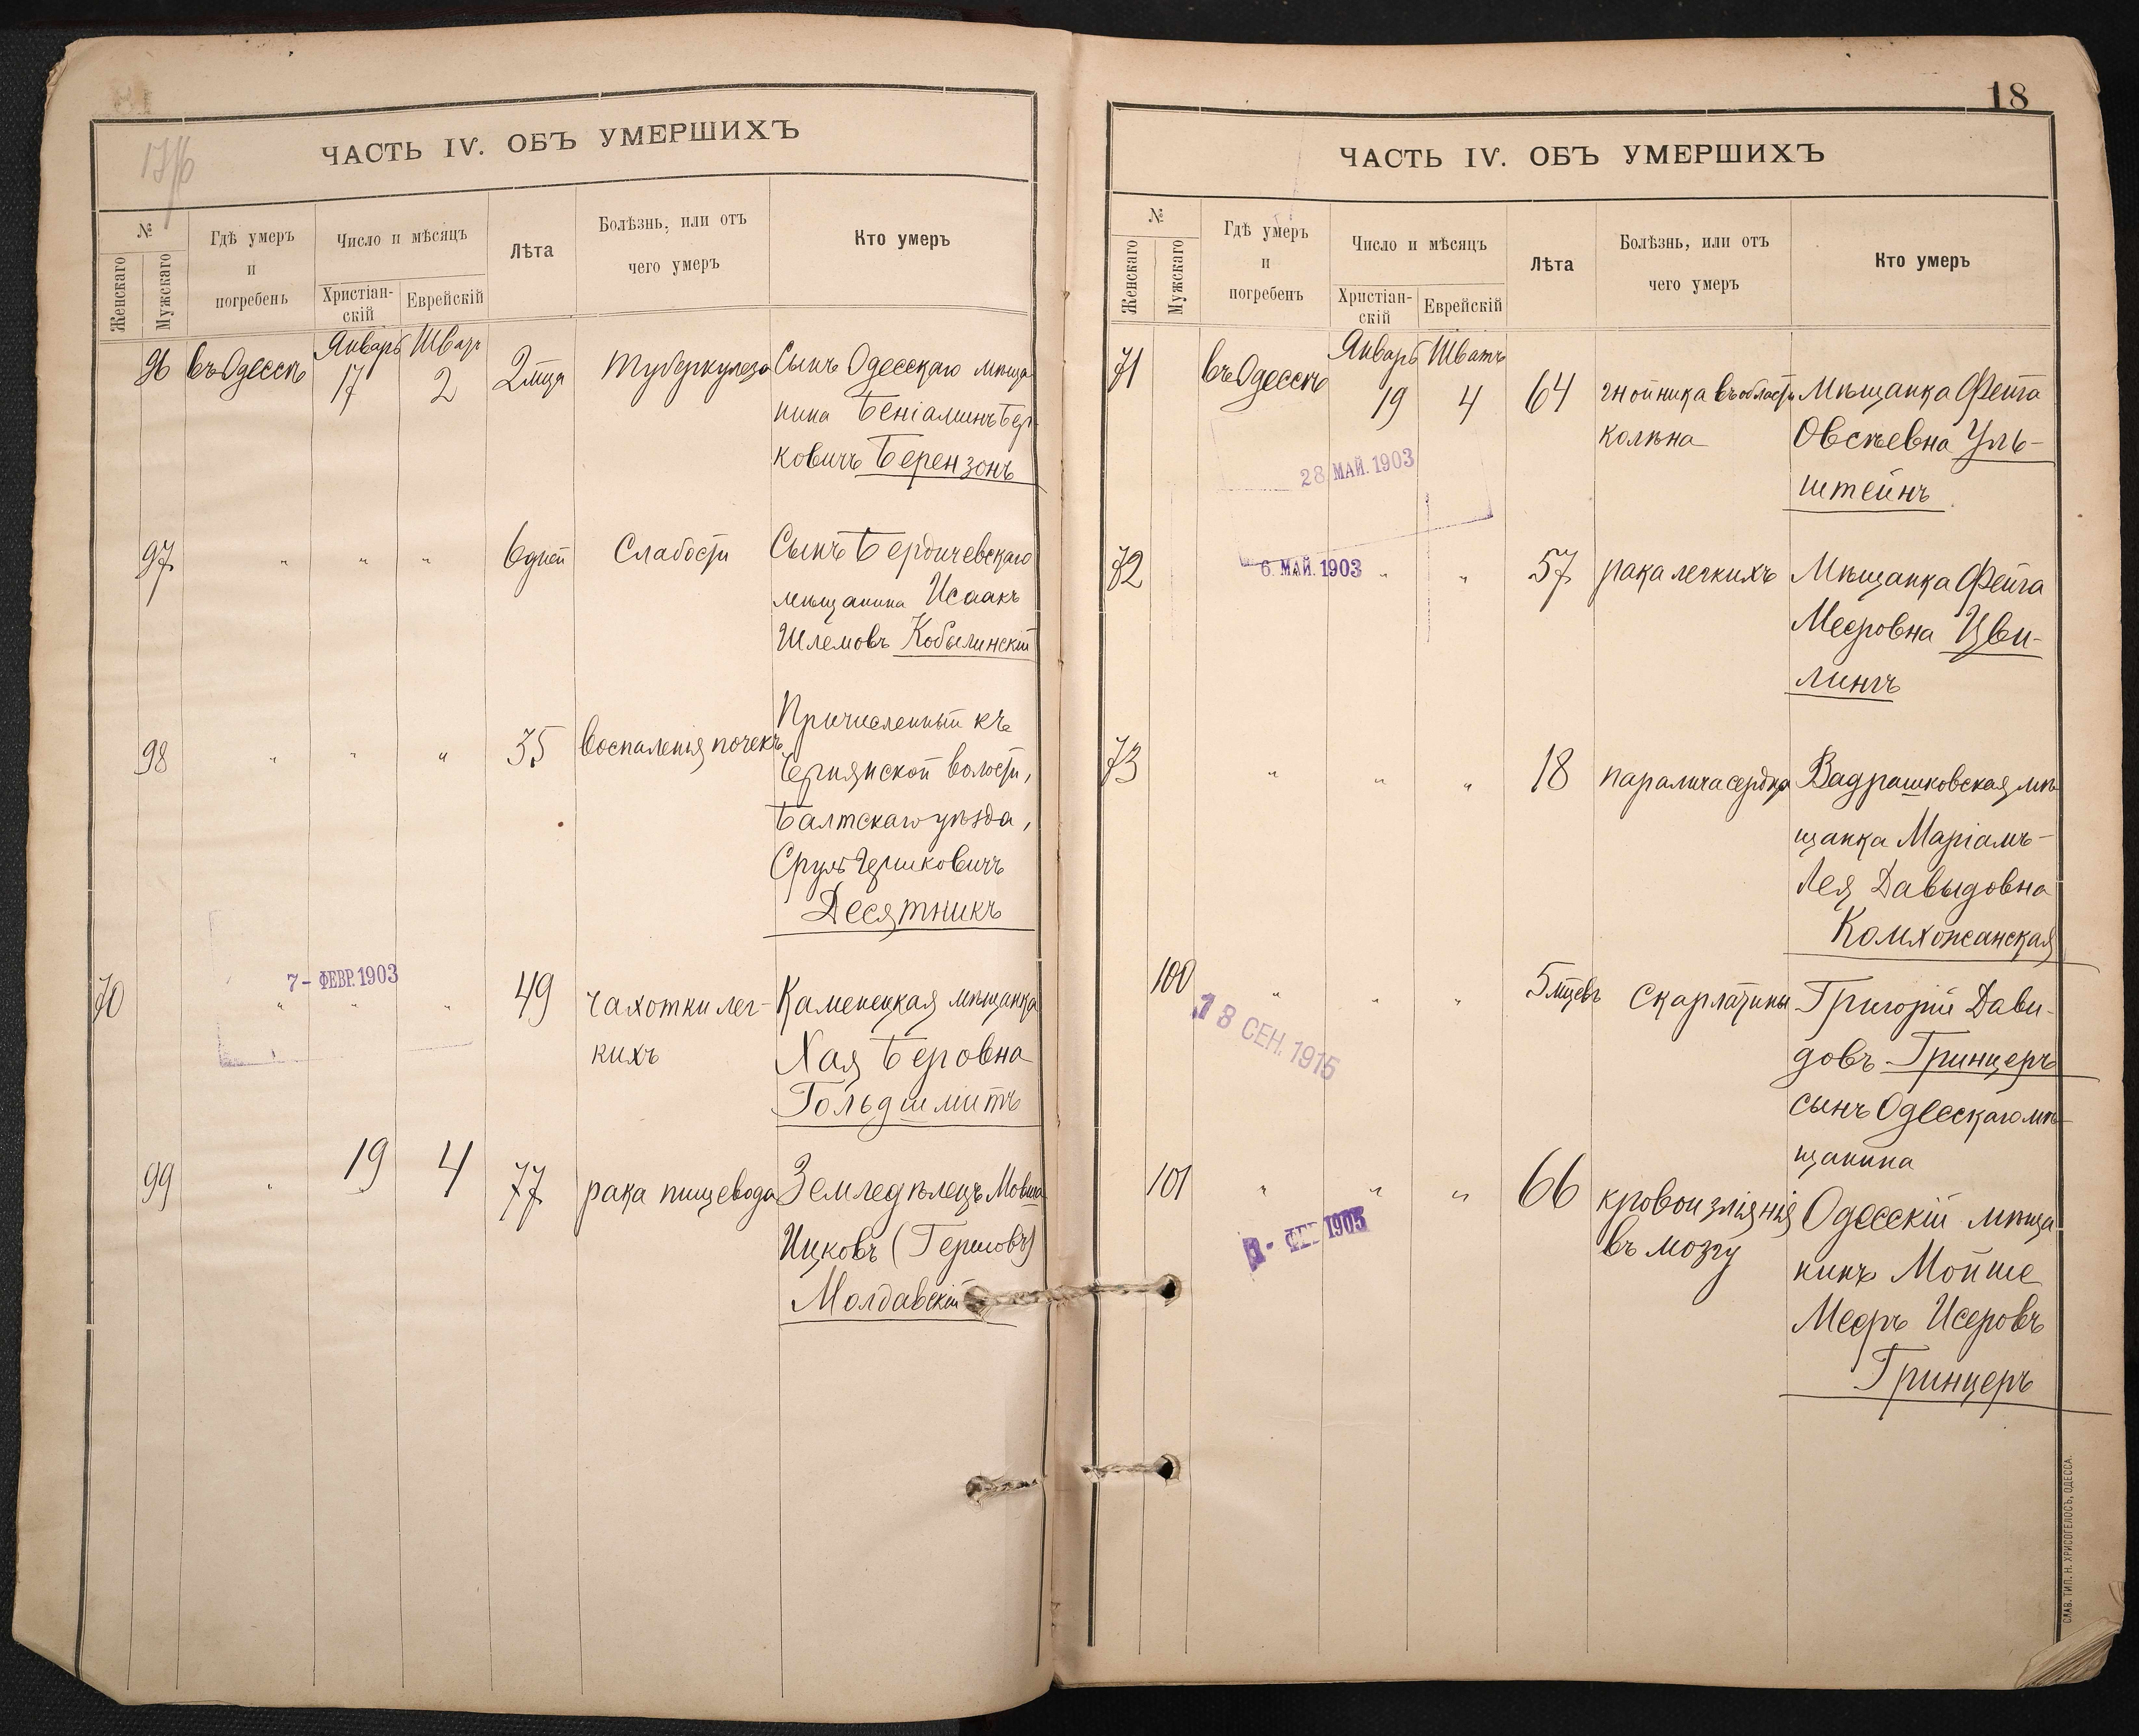 ЧАСТЬ IV. ОБЪ УМЕРШИХЪ
№
Женскаго
Мужскаго
Гдѣ умеръ
и
погребенъ
Число и мѣсяцъ
Христіан-
скій
Еврейскій
Лѣта
Болѣзнь, или отъ
чего умеръ
Кто умеръ
Январь Шватъ
96 въ Одессѣ 17 2 2 мца Туберкулеза Сынъ Одесскаго мѣща
нина Беніаминъ Бер-
ковичъ Берензонъ
97 " " " 6 дней Слабости Сынъ Бердичевскаго
мѣщанина Исаакъ
Шлемовъ Кобылинскій
98 " " " 35 воспаленія почекъ Причисленный къ
волости,
Балтскаго уѣзда,
Сруль Гершковичъ
Десятникъ
7 - ФЕВР. 1903
70 " " " 49 чахотки лег-
кихъ
Каменецкая мѣщанка
Хая Беровна
Гольдшмитъ
99 " 19 4 77 рака пищевода Земледѣлецъ Мовша
Ицковъ (Гершовъ)
Молдавскій
18
ЧАСТЬ IV. ОБЪ УМЕРШИХЪ
№
Женскаго
Мужскаго
Гдѣ умеръ
и
погребенъ
Число и мѣсяцъ
Христіан-
скій
Еврейскій
Лѣта
Болѣзнь, или отъ
чего умеръ
Кто умеръ
Январь Шватъ
71 въ Одессѣ 19 4 64 гнойника въ области
колѣна
Мѣщанка Фейга
Овсѣевна Уль-
штейнъ
28 МАЙ. 1903
72 6. МАЙ. 1903 " " 57 рака легкихъ Мѣщанка Фейга
Мееровна Цви-
лингъ
73 " " " 18 паралича сердца Вадрашковская мѣ
щанка Маріамъ-
Лея Давыдовна
Комхожанская
100 " " " 5 мцевъ Скарлатины Григорій Дави-
довъ Гринцеръ
сынъ Одесскаго мѣ-
щанина
18 СЕН. 1915
101 " " " 66 кровоизліянія
въ мозгу
Одесскій мѣща
нинъ Мойше
Мееръ Исеровъ
Гринцеръ
СЛАВ. ТИП. Н. ХРИСОГЕЛОСЪ, ОДЕССА.